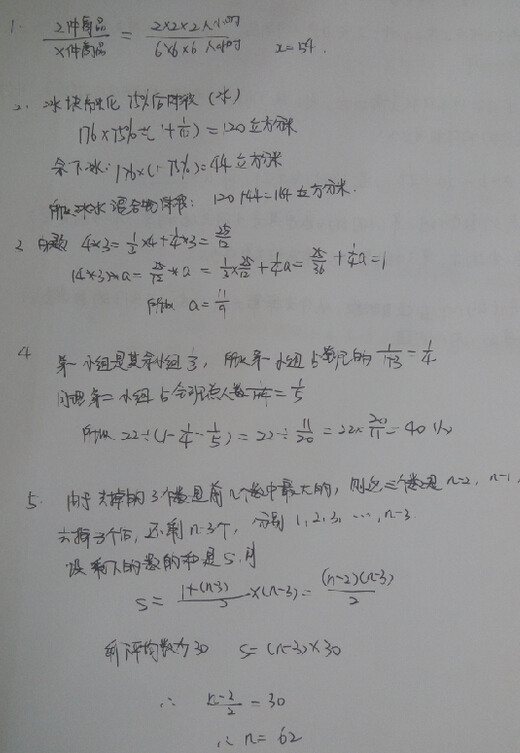 1. 2件商品/x件商品 = 2×2×2 人小时/6×6×6 人小时 x=54.
2. 冰块融化75%后体积（水）
176×75%÷(1+1/10)=120立方米
余下冰: 176×(1-75%)=44立方米
所以冰水混合物体积: 120+44=164立方米.
3 4*3=1/3×4+1/4×3=25/12
(4*3)*a=25/12*a=1/3×25/12+1/4a=25/36+1/4a=1
所以 a=11/9
4 第一小组是其余小组1/3, 所以第一小组占单元的1/(1+3)=1/4
同理第二小组占全班总人数1/(1+4)=1/5
所以 22÷(1-1/4-1/5)=22÷11/20=22×20/11=40
5. 由于去掉的3个数是前n个数中最大的, 则这三个数是n-2, n-1,
去掉三个后, 还剩n-3个, 分别1,2,3,…,n-3.
设剩下的数的和是S.
S=(1+(n-3))/2×(n-3)=(n-2)(n-3)/2
平均数为30 S=(n-3)×30
∴ (n-2)/2=30
∴ n=62